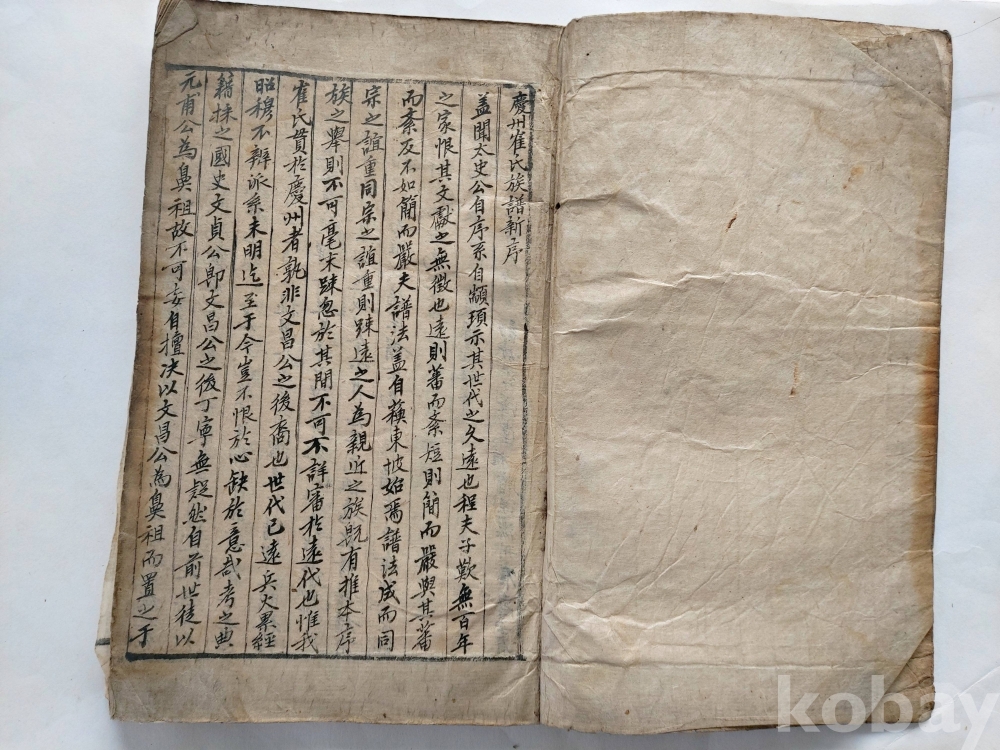 慶州崔氏族譜新序
盖聞太史公自序系自顓頊示其世代之久遠也程夫子歎無百年
之家恨其文獻之無徵也遠則蕃而紊短則簡而嚴與其蕃
而紊及不如簡而嚴夫譜法盖自蘓東坡始焉譜法成而同
宗之誼重同宗之誼重則踈遠之人為親近之族既有推本序
族之舉則不可毫末踈忽於其間不可不詳審於遠代也惟我
崔氏貫於慶州者孰非文昌公之後裔也世代已遠兵火累經
昭穆不辨派系未明迄至于今豈不恨於心缺於意哉考之典
籍採之國史文貞公卽文昌公之後丁寧無疑然自前世徒以
元甫公為鼻祖故不可妄自擅决以文昌公為鼻祖而置之于
kobay